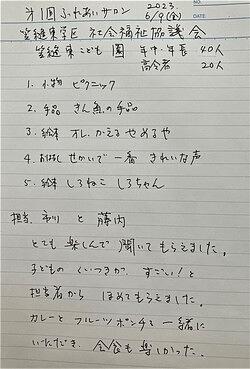 NO.
DATE
第1回 ふれあいサロン 2023. 6/9(金)
笠縫東学区 社会福祉協議会
笠縫東こども園 年中・年長 40人
高令者 20人
1. 小物 ピクニック
2. 手品 きん魚の手品
3. 絵本 オレ、かえるやめるや
4. お話し せかいで一番 きれいな声
5. 絵本 しろねこ しろちゃん
担当. 市川 と 藤内
とても楽しんで聞いてもらえました。
子どもの くいつきが、すごい!と
担当者から ほめてもらえました。
カレーと フルーツポンチを 一緒に
いただき、会食も楽しかった。